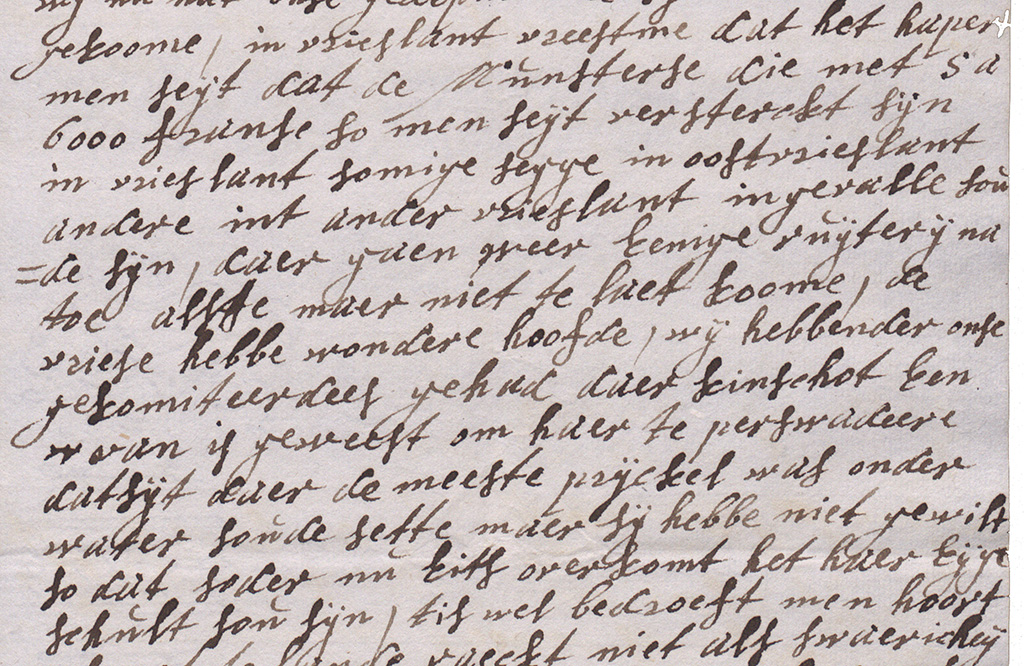 gekoome, in vrieslant vreestme dat het haper
men seyt dat de Munsterse die met 5 a
6000 franse so men seyt versterckt sijn
in vrieslant somige segge in oostvrieslant
andere int ander vrieslant ingevalle sou
=de sijn, daer gaen weer eenige ruijterij na
toe alsse maer niet te laet koome, de
vriese hebbe wondere hoofde, wij hebbender onse
gekomiteerdees gehad daer kinschot een
van is geweest om haer te perswadeere
datsijt daer de meeste prijckel was onder
water soude sette maer sij hebbe niet gewilt
so dat soder nu eits overkomt het haer eijge
schult sou sijn, tis wel bedroeft men hoort
lande niet als swaericheij